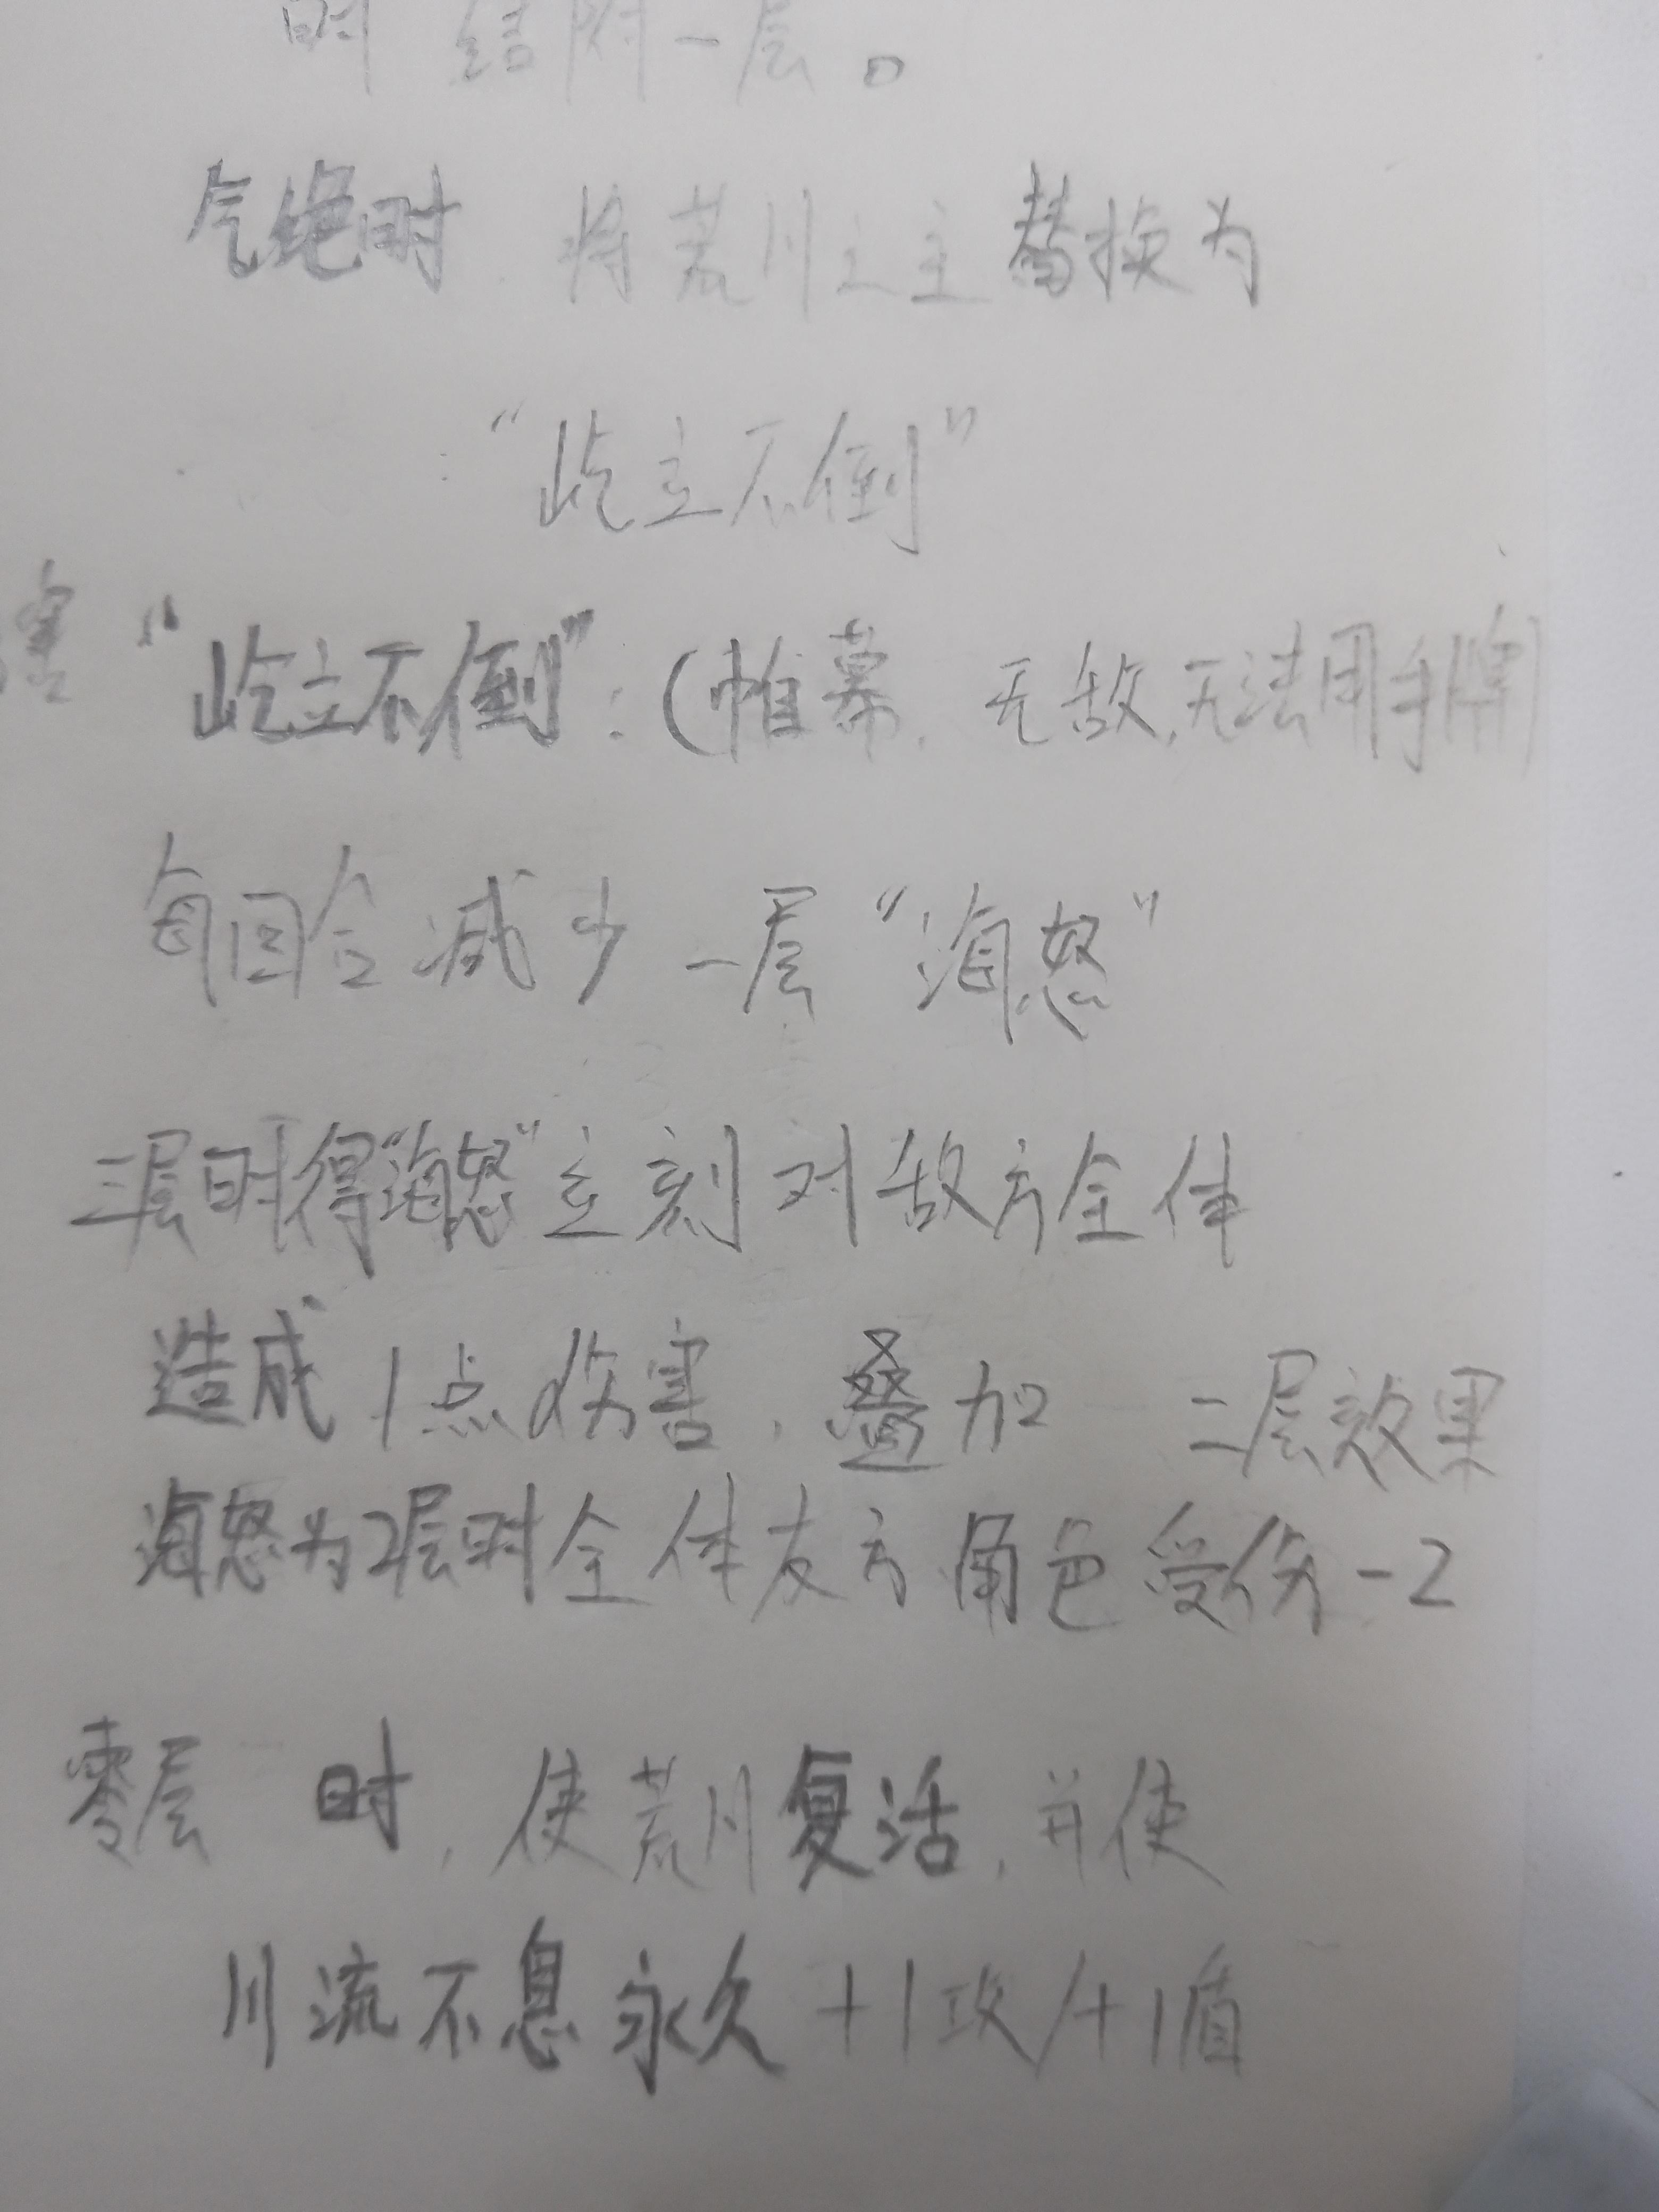 时 结附一层。
气绝时 将荒川之主替换为
“屹立不倒”
害 “屹立不倒”:(帷幕,无敌,无法用手牌)
每回合减少一层“海怒”
三层时得“海怒”立刻对敌方全体
造成1点伤害,叠加 二层效果
海怒为2层时全体友方角色受伤-2
零层 时,使荒川复活,并使
川流不息永久+1攻/+1盾